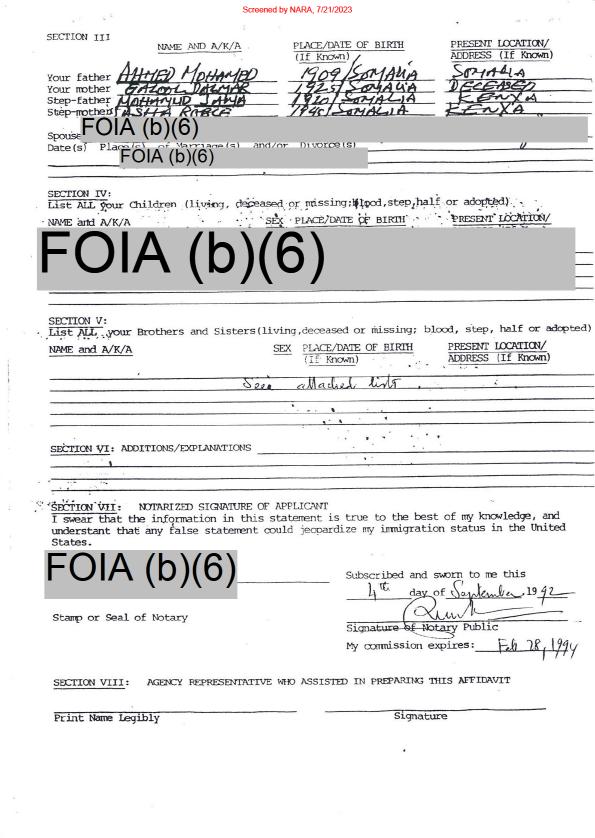 Screened by NARA, 7/21/2023
SECTION III
NAME AND A/K/A PLACE/DATE OF BIRTH PRESENT LOCATION/
(If Known) ADDRESS (If Known)
Your father AHMED MOHAMED 1909/SOMALIA SOMALIA
Your mother DALMAR 1925/SOMALIA DECEASED
Step-father MOHAMUD JAMA 1920/SOMALIA KENYA
Step-mother ASHA RABLE 1940/SOMALIA KENYA
Spouse FOIA (b)(6)
Date(s) Place(s) of Marriage(s) and/or Divorce(s) "
FOIA (b)(6)
SECTION IV:
List ALL your Children (living, deceased or missing;blood,step,half or adopted).
NAME and A/K/A SEX PLACE/DATE OF BIRTH PRESENT LOCATION/
FOIA (b)(6)
SECTION V:
List ALL your Brothers and Sisters(living,deceased or missing; blood, step, half or adopted)
NAME and A/K/A SEX PLACE/DATE OF BIRTH PRESENT LOCATION/
(If Known) ADDRESS (If Known)
See attached lists
SECTION VI: ADDITIONS/EXPLANATIONS
SECTION VII: NOTARIZED SIGNATURE OF APPLICANT
I swear that the information in this statement is true to the best of my knowledge, and
understand that any false statement could jeopardize my immigration status in the United
States.
FOIA (b)(6)
Subscribed and sworn to me this
4th day of September, 1992
Stamp or Seal of Notary
Signature of Notary Public
My commission expires: Feb 28, 1994
SECTION VIII: AGENCY REPRESENTATIVE WHO ASSISTED IN PREPARING THIS AFFIDAVIT
Print Name Legibly Signature